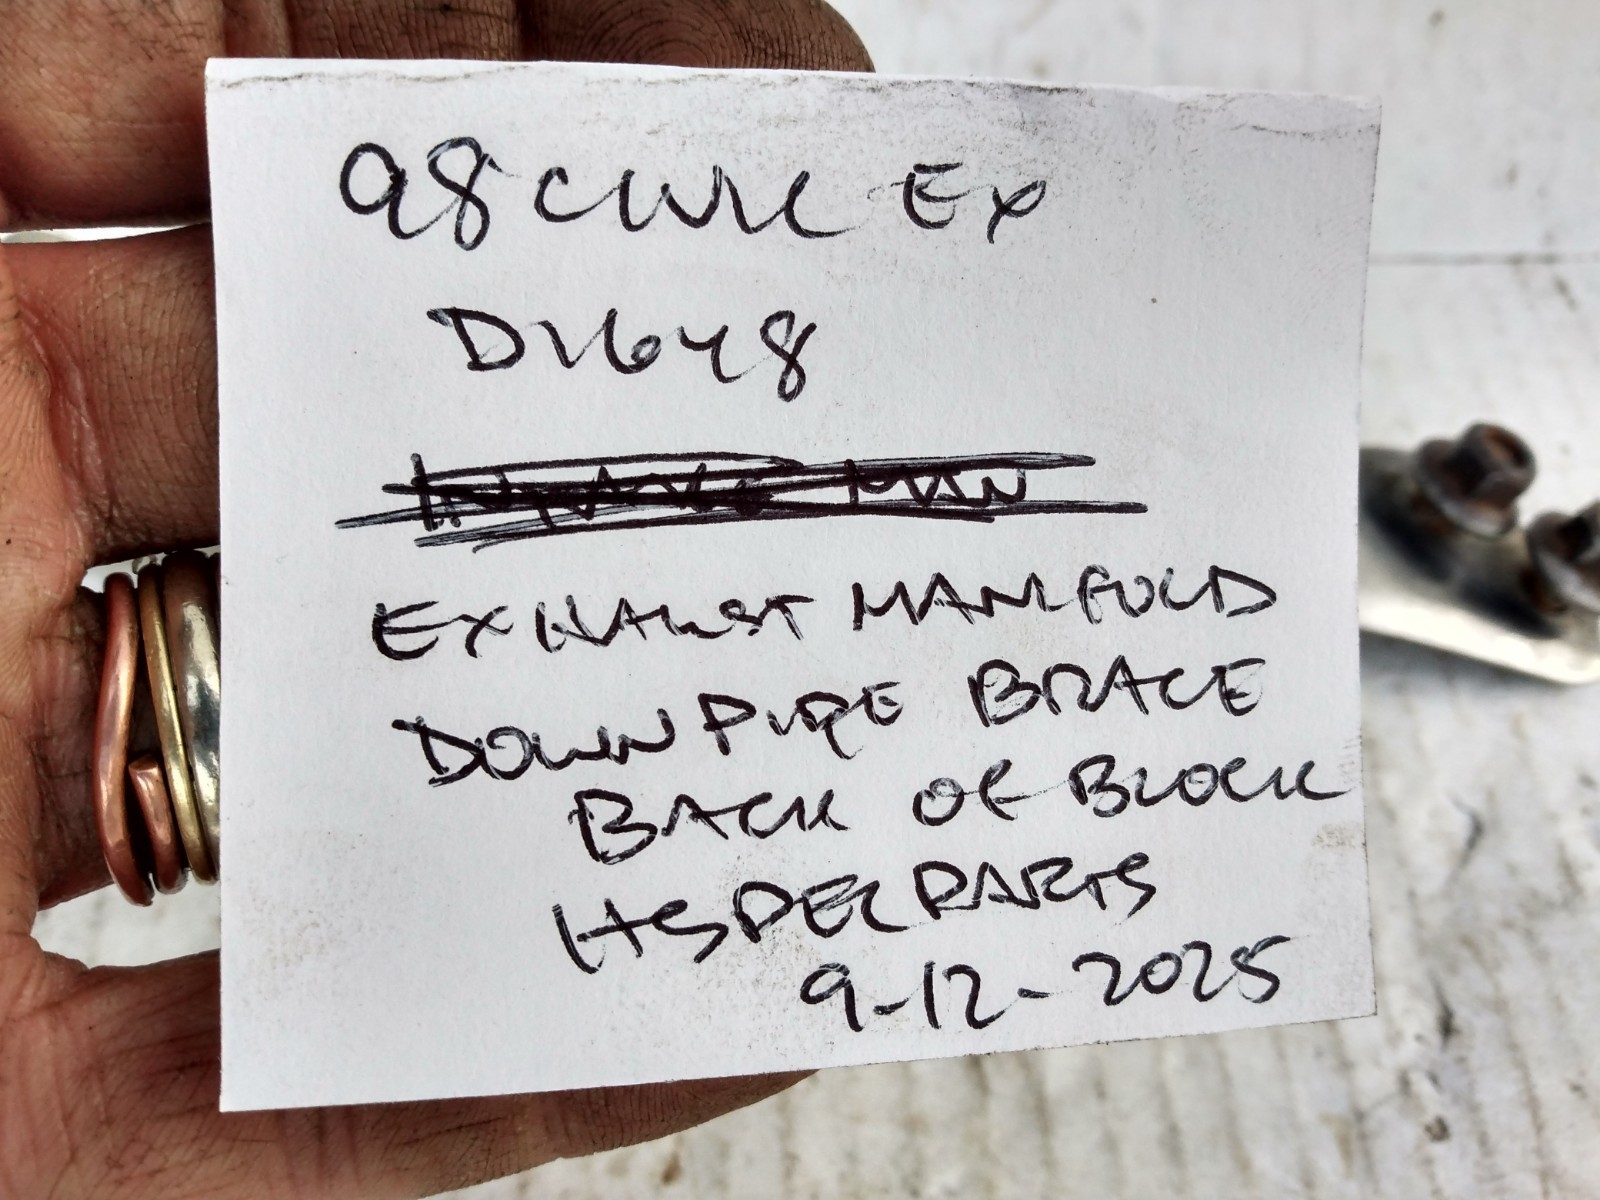 98 CIVIC EX
D16Y8
MAN
EXHAUST MANIFOLD
DOWN PIPE BRACE
BACK OF BLOCK
HSPECPARTS
9-12-2025